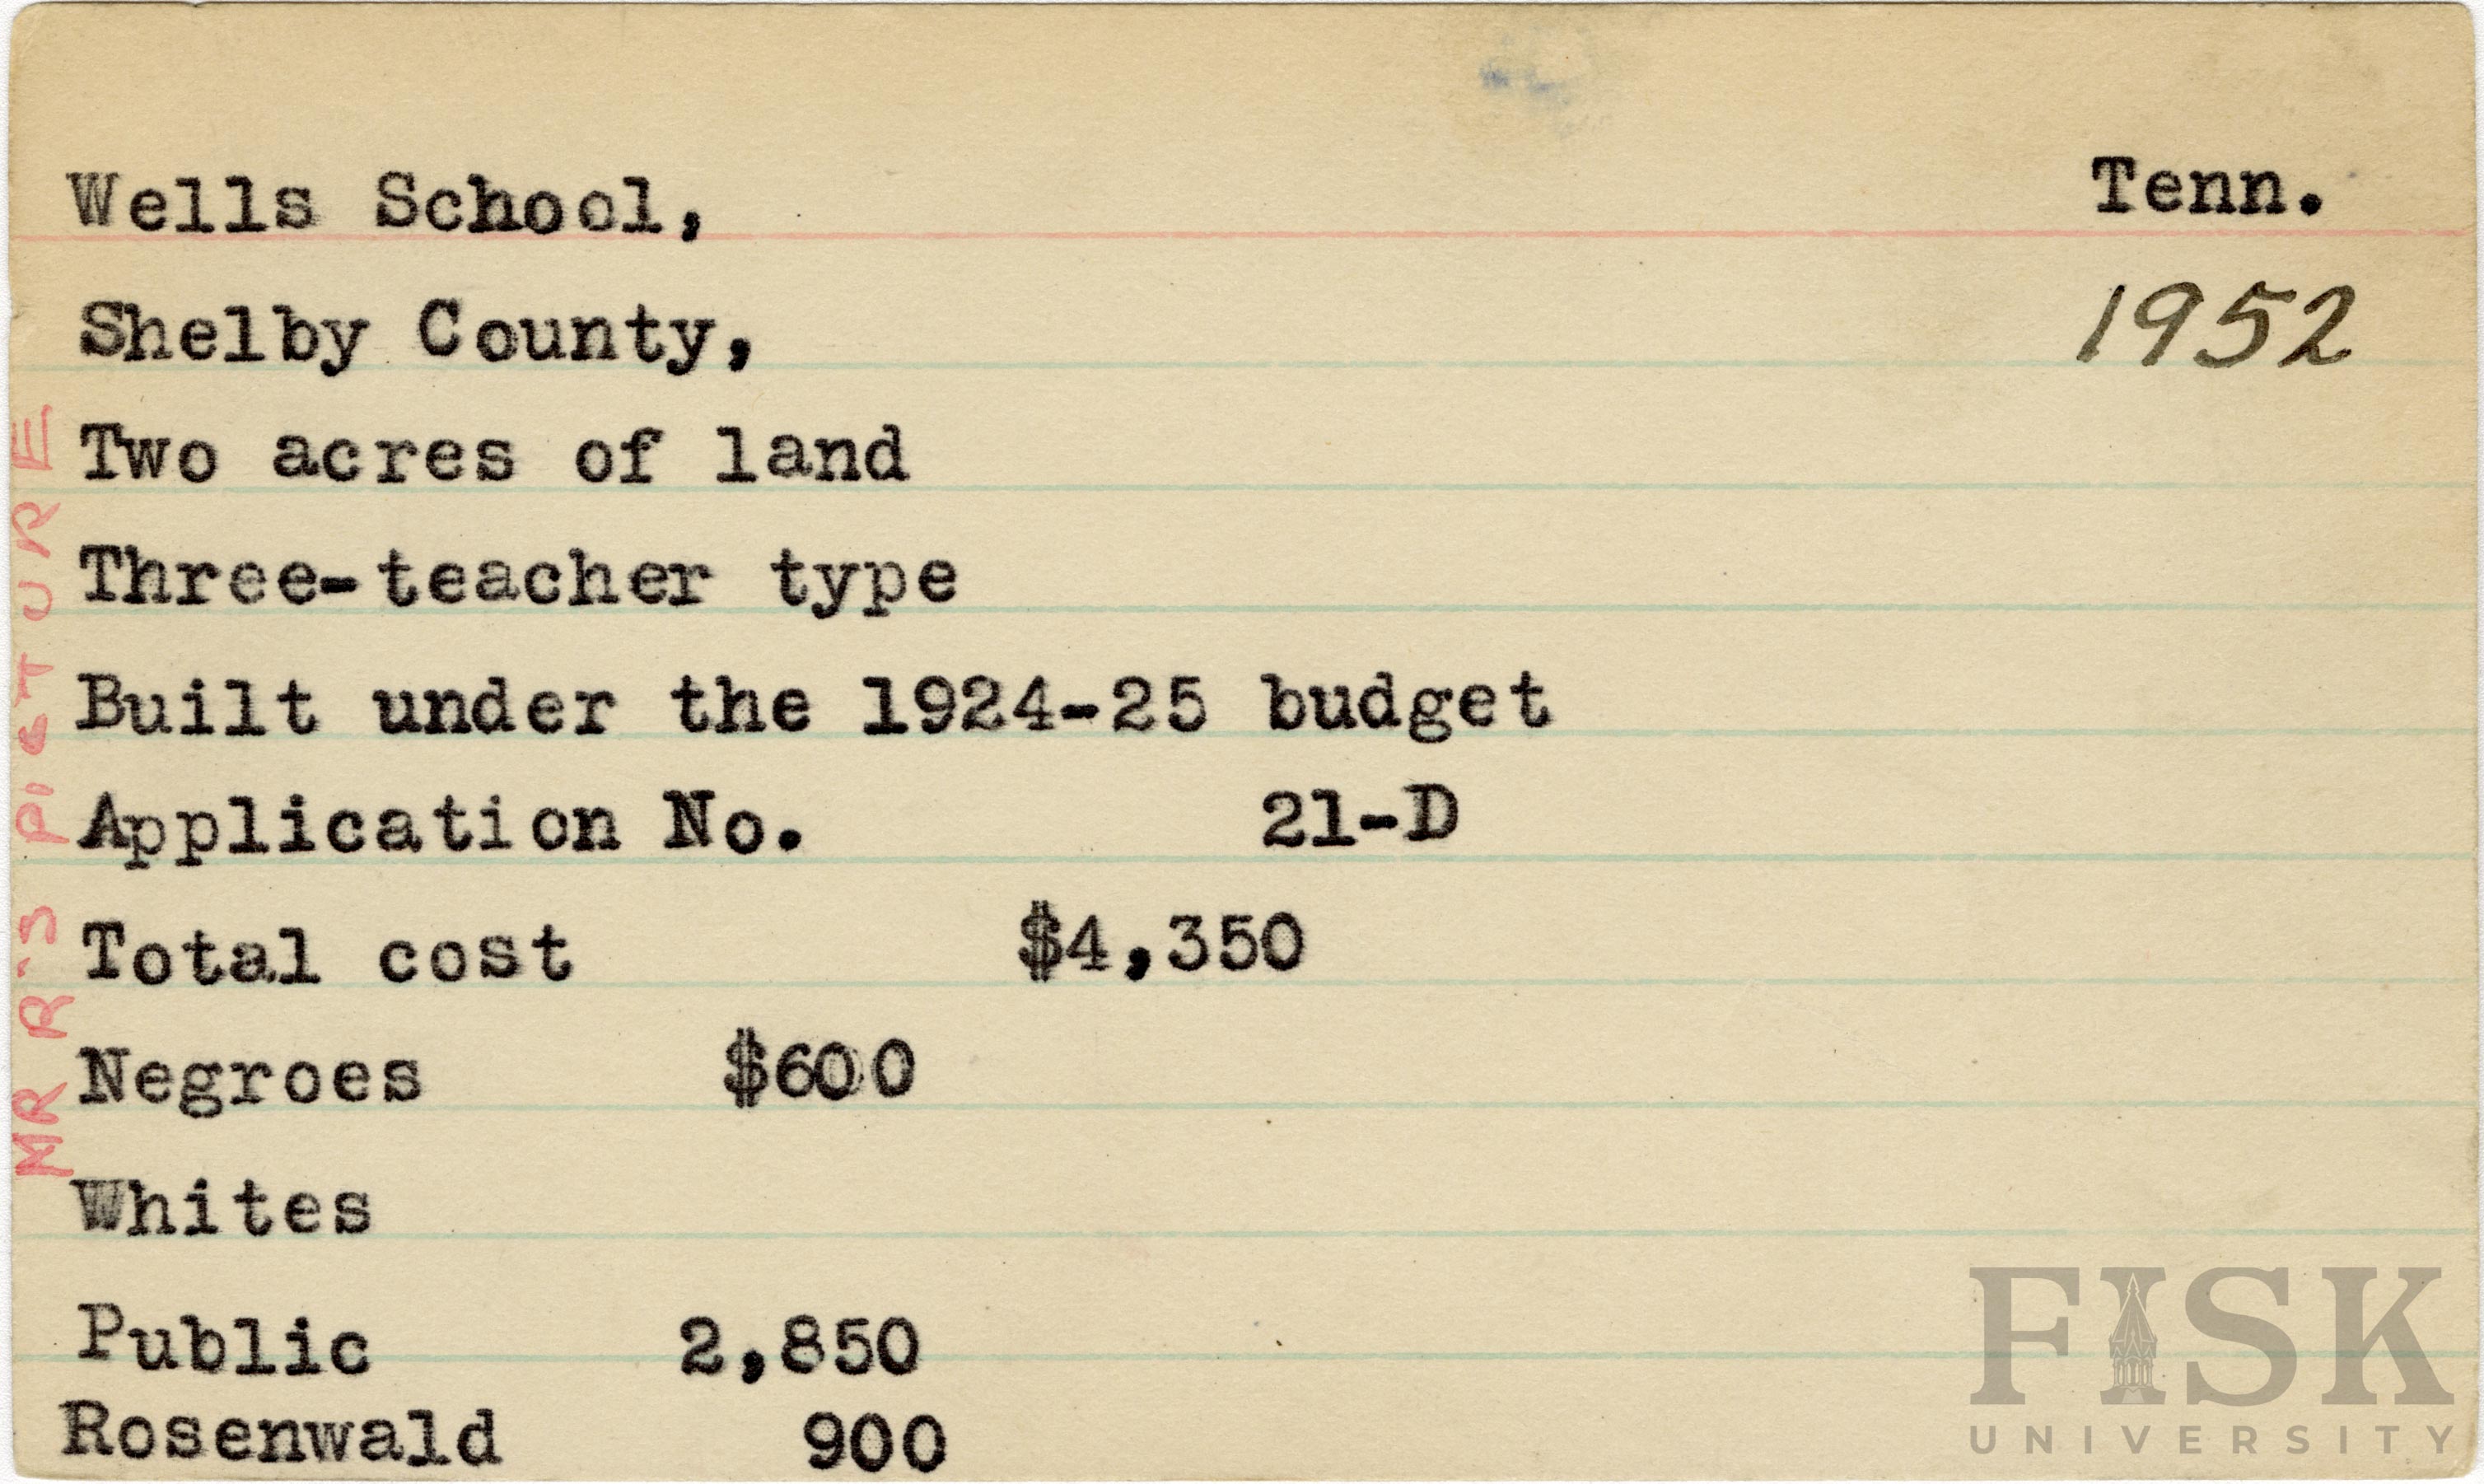 Wells School,
Tenn.
Shelby County,
1952
Two acres of land
Three-teacher type
Built under the 1924-25 budget
Application No. 21-D
Total cost $4,350
Negroes $600
Whites
Public 2,850
Rosenwald 900
MR R'S PICTURE
FISK
UNIVERSITY